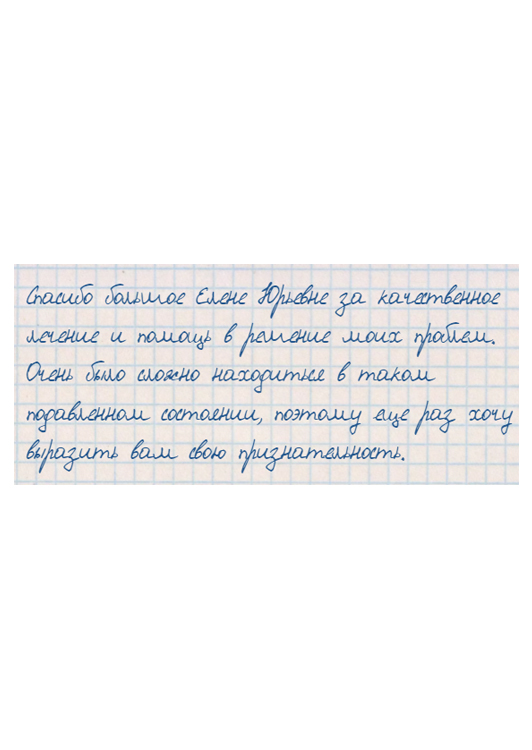 Спасибо большое Елене Юрьевне за качественное
лечение и помощь в решение моих проблем.
Очень было сложно находиться в таком
подавленном состоянии, поэтому еще раз хочу
выразить вам свою признательность.